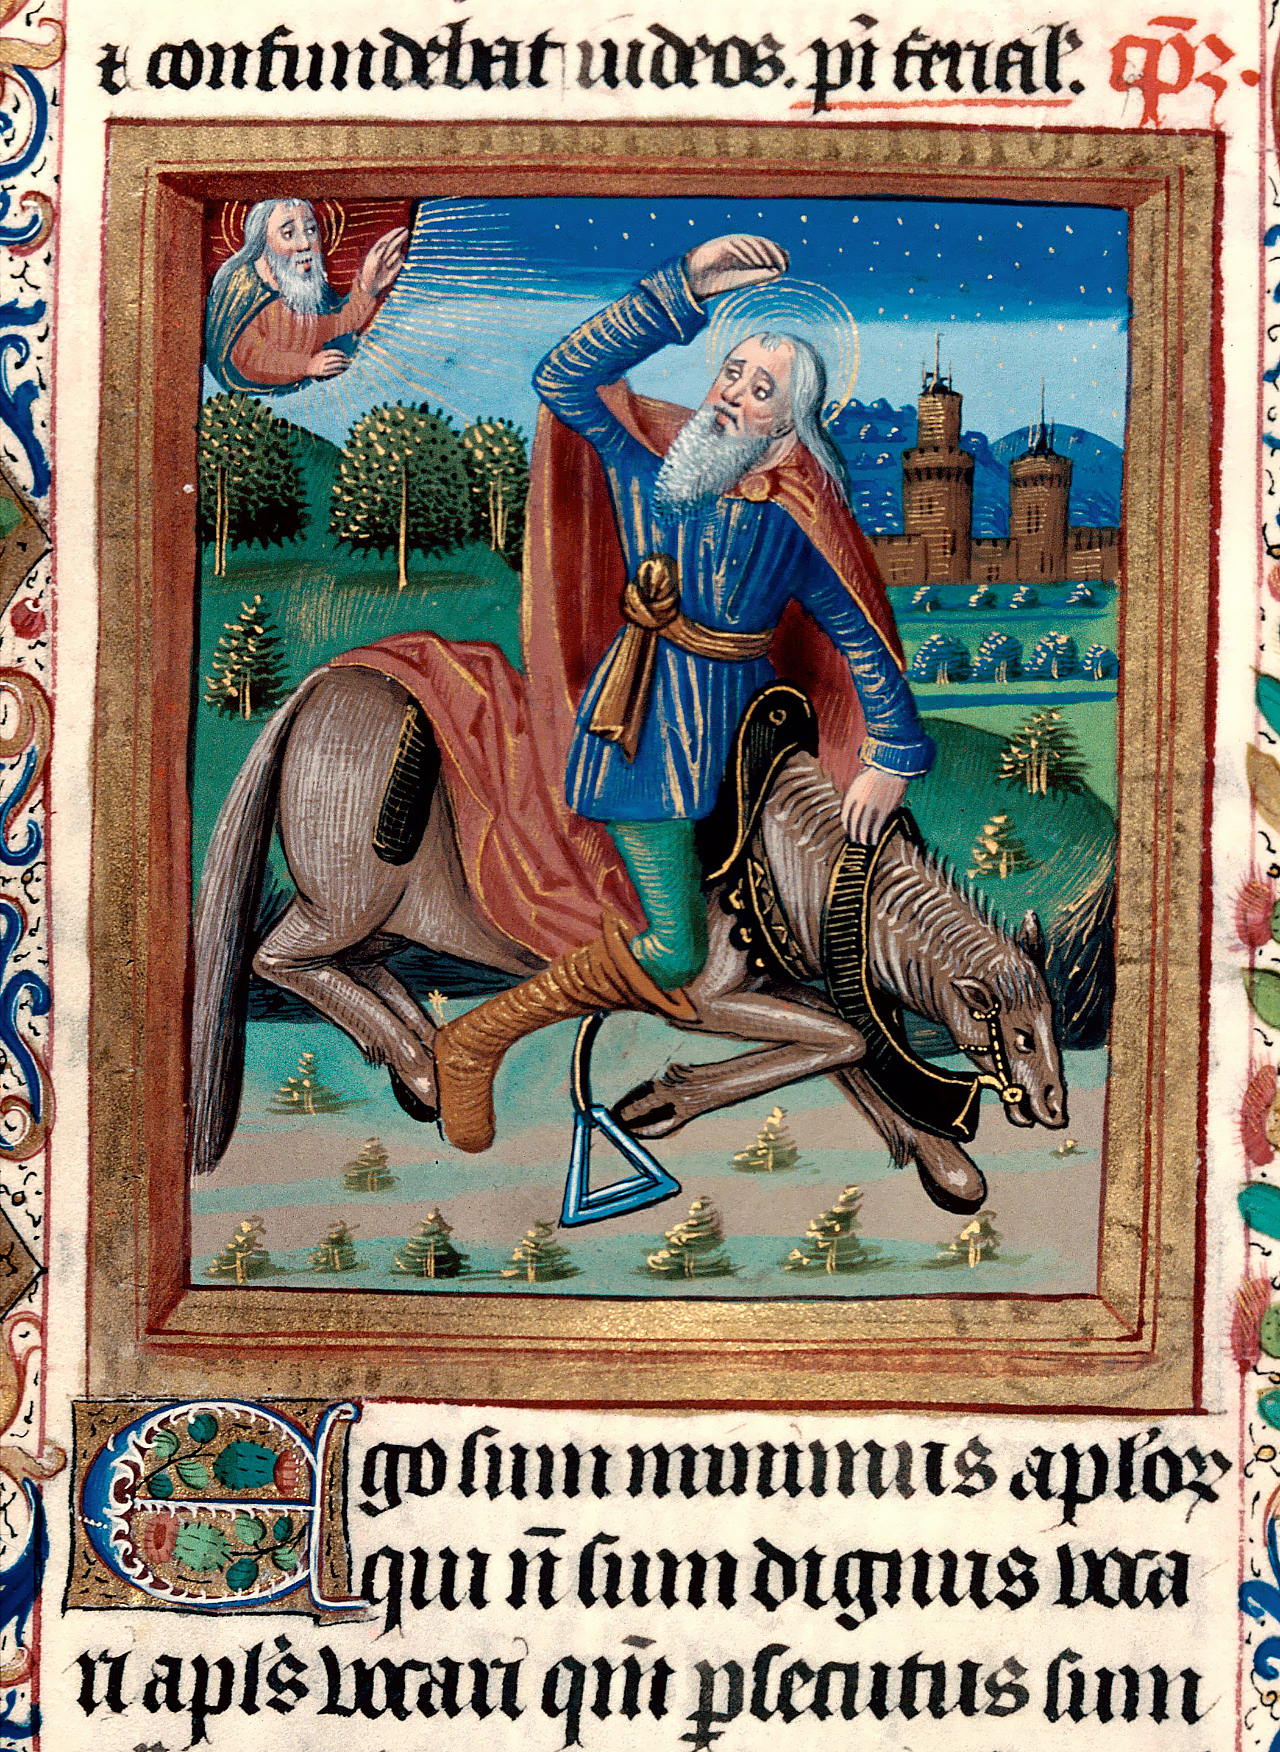 ⁊ confundebat iudeos. p̄i ferial'. cp̄z.
Ego sum minimus apl'oꝝ
qui n̄ sum dignus voca
ri apl's vocari qm̄ ꝑsecutus sum